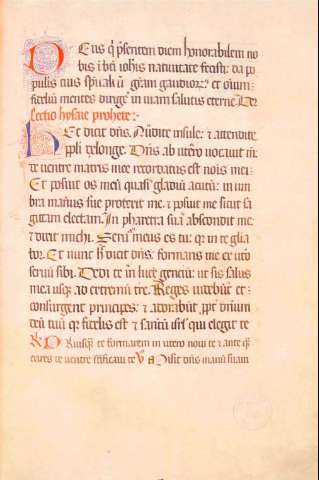 Deus q̇ p̄sentem diem honorabilem no
bis i bt̄i ioh̄is natiuitate fecisti: da po
pulis tuis sp̄ualiū gr̄am gaudior: et oīum
fidelīu mentes dirige in uiam salutis eterne.
Lectio hysaie prophete:
Hec dicit dn̄s. Audite insule: et attendite
pp̄li de longe. Dn̄s ab utero uocauit me:
de uentre matris mee recordatus est nōis mei.
Et posuit os meū quasi gladiū acutū: in um
bra manus sue protexit me. et posuit me sicut sa
gittam electam. In pharetra sua abscondit me:
et dixit michi. Seruꝰ meus es tu: qr in te glīa
bor. Et nunc h̄ dicit dn̄s: formans me ex ute
seruū sibi. Dedi te in lucē gentiū: ut sis salus
mea usq ad extremū tr̄e. Reges uidebūt et
consurgent principes: et adorabūt ppt̄ dn̄um
deū tuū qr fidelis est et sanctū isrl̄ qui elegit te
Priusq̄ te formarem in utero noui te et anteq̄
exires de uentre sc̄ificaui te V Misit dn̄s manū suam